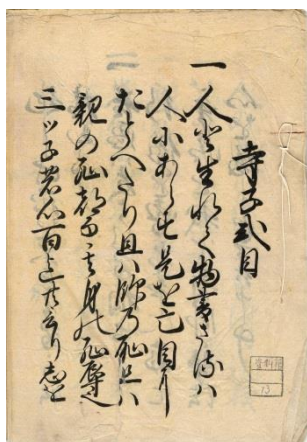 寺子式目
一人と生れて物書さるハ
人にあらす是を亡目に
たとへたり且ハ師乃恥且ハ
親の恥都而ハ其身の恥辱也
三ツ子の心百迄と云り志を